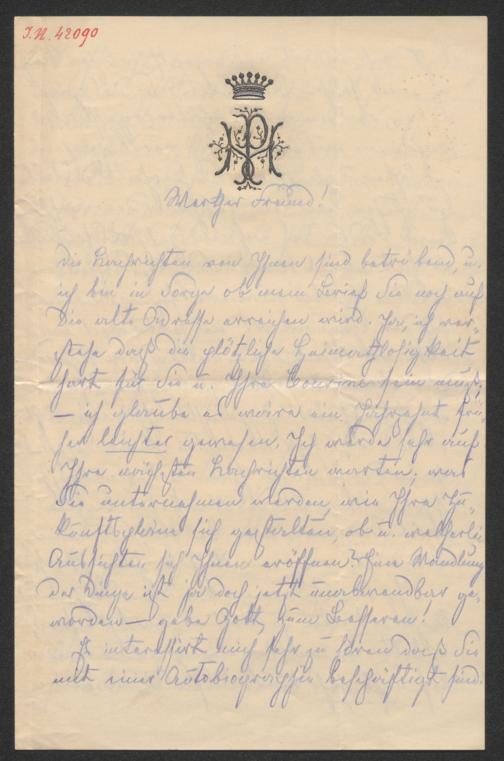 I.N. 42090
Werther Freund!
Die Nachrichten von Ihnen sind betrübend, u.
ich bin in Sorge ob mein Brief Sie noch auf
die alte Adresse erreichen wird. Ja, ich ver-
stehe daß die plötzliche Heimathlosigkeit
hart für Sie u. Ihre Cousine sein muß,
— ich glaube es wäre ein Jahrzehnt frü-
her leichter gewesen. Ich werde sehr auf
Ihre nächsten Nachrichten warten, was
Sie unternehmen werden, wie Ihre Zu-
kunftspläne sich gestalten, ob u. welcherlei
Aussichten sich Ihnen eröffnen? Eine Wandlung
der Dinge ist ja doch jetzt unabwendbar ge-
worden — gebe Gott, zum Besseren!
Es interessirt mich sehr zu hören daß Sie
mit einer Autobiographie beschäftigt sind.